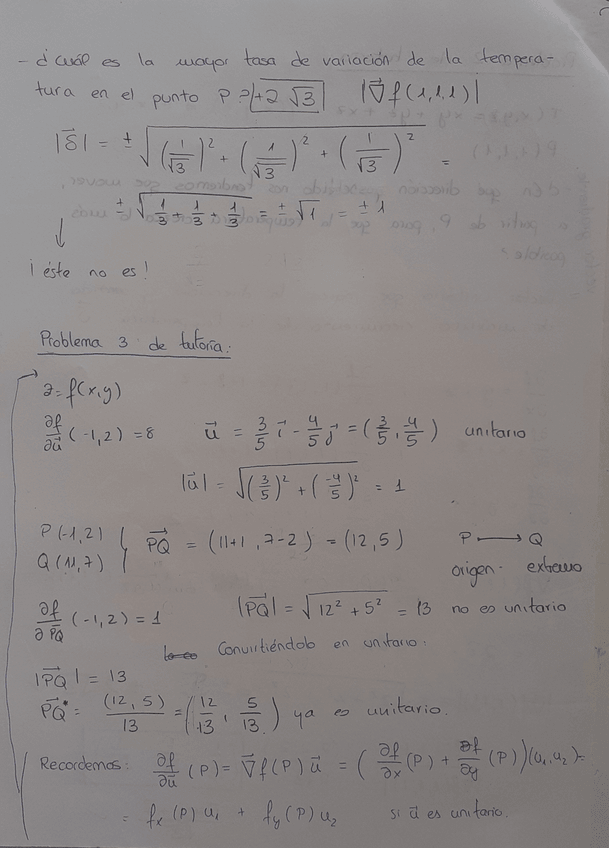 - ¿cuál es la mayor tasa de variación de la tempera-
tura en el punto P? |+2 √3| |∇f(1,1,1)|
|δ| = ± √((1/√3)² + (1/√3)² + (1/√3)²) =
± √(1/3 + 1/3 + 1/3) = ± √1 = ± 1
↓
¡ éste no es !
Problema 3 de tutoría:
z = f(x,y)
∂f/∂u (-1,2) = 8 u = 3/5 i - 4/5 j = (3/5, 4/5) unitario
|u| = √((3/5)² + (-4/5)²) = 1
P(-1,2) PQ = (11+1, 7-2) = (12,5) P ⟼ Q
Q(11,7) origen. extremo
∂f/∂PQ (-1,2) = 1 |PQ| = √(12² + 5²) = 13 no es unitario
Convirtiéndolo en unitario:
|PQ| = 13
PQ* = (12, 5)/13 = (12/13, 5/13) ya es unitario.
Recordemos: ∂f/∂u (P) = ∇f(P) u = (∂f/∂x (P) + ∂f/∂y (P))(u₁, u₂) =
= fx (P) u₁ + fy (P) u₂ si u es unitario.